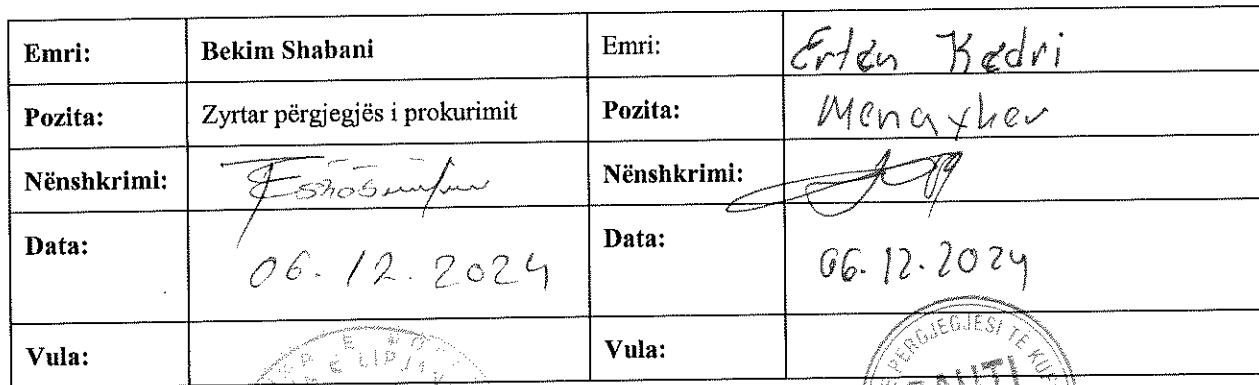 Emri: Bekim Shabani Emri: Ertan Kadri
Pozita: Zyrtar përgjegjës i prokurimit Pozita: Menaxher
Nënshkrimi: Nënshkrimi:
Data: 06.12.2024 Data: 06.12.2024
Vula: Vula: